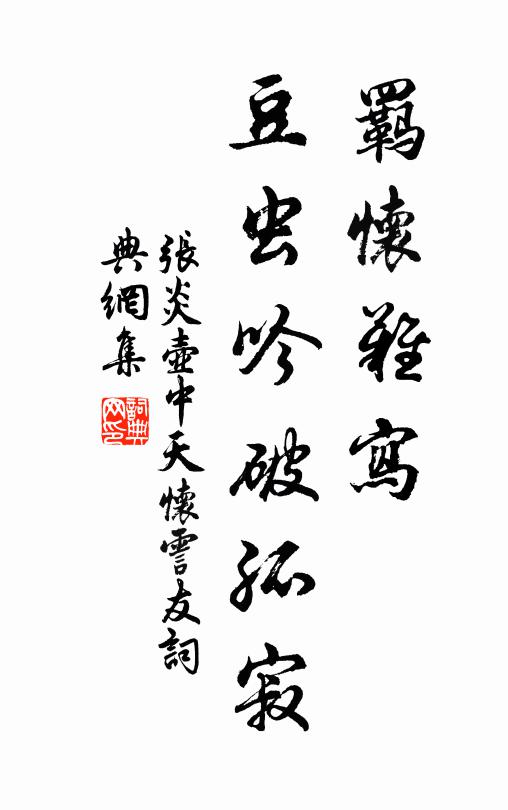 羈懷難寫
豆虫吟破孤寂
張炎壺中天懷雪友詞
典網集
詞典
网印